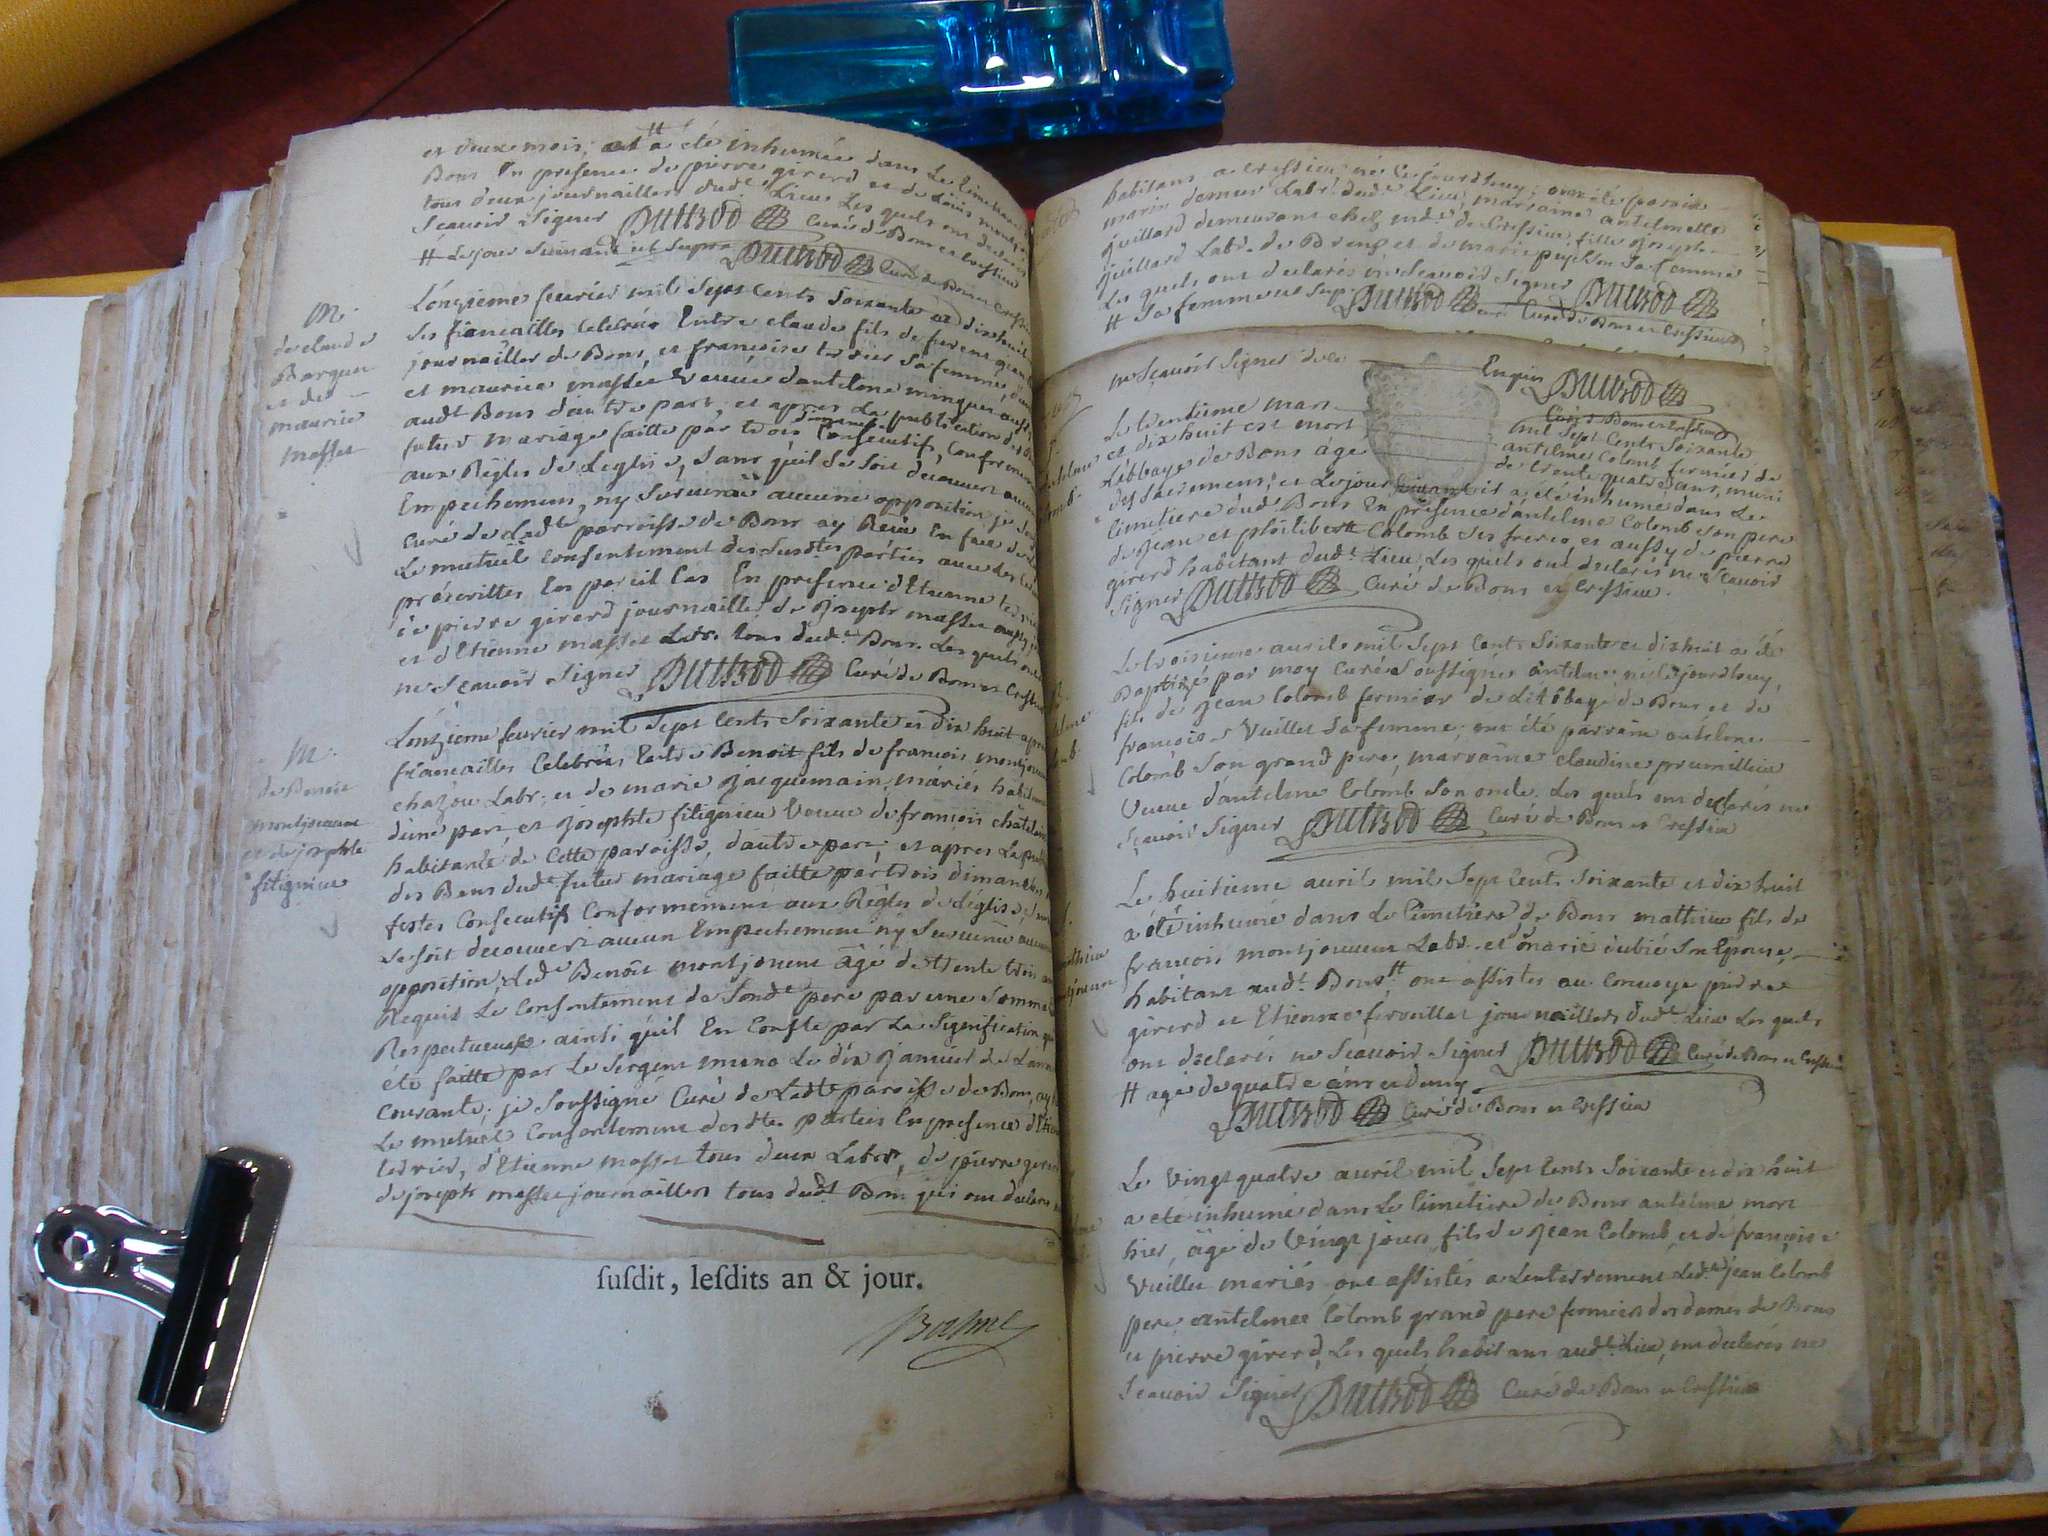 et deux mois; et a eté inhumée dans Le Cimetiere
Bons En presence de pierre girerd et de Louis
tous deux journaillers dudt Lieu Les quels ont declarés
Sçavoir Signer Dutrod Curé de Bons et Cressieu
# Le jour Suivant ut Supra Dutrod Curé de Bons et Cressieu
m.
de claude
et de
maurise
masset
L'onzieme fevrier mil Sept Cents Soixante et dixhuit
Les fiancailles Celebrées Entre claude fils de
journailler de Bons, et françoise terrier Sa femme, d'une
et maurise massée Veuve d'antelme minguet aussy
audt Bons d'autre part, et apres La publication des
futur mariage faitte par trois dimanches Consecutifs, Conformement
aux Regles de Leglise, Sans qu'il Se Soit decouvert aucun
Empechement, ny Survenüe aucune opposition je
Curé de Ladte parroisse de Bons ay Reçu En face de
Le mutuel Consentement des Susdtes parties avec Les
préscrittes En pareil Cas En presence d'Etienne terrier
de pierre girerd journailler de Joseph masset aussy
et d'Etienne masset Labr. tous dudt Bons. Les quels ont
ne Sçavoir Signer Dutrod Curé de Bons et Cressieu
m.
de Benoit
montjouvent
et de josephte
fitignieu
L'onzieme fevrier mil Sept Cents Soixante et dix huit apres
fiancailles Celebrées Entre Benoit fils de francois montjouvent
chazou Labr. et de marie Jacquemain, mariés habitans
d'une part et Josephte fitignieu Veuve de francois châtelain
habitante de Cette paroisse, d'autre part; et apres La
des Bans dudt futur mariage faitte par trois dimanches
festes Consecutifs Conformement aux Regles de Léglise
Se soit decouvert aucun Empechement ny Survenüe aucune
opposition; Ledt Benoit montjouvent âgé de trente trois ans
Requis Le Consentement de Sondt pere par une Sommation
Respectueuse ainsi quil En Conste par La Signification qui
été faitte par Le Sergent Le dix Janvier de L'année
Courante; je Soussigné Curé de Ladte paroisse de Bons, ay
Le mutuel Consentement desdtes parties En presence d'Etienne
terrier, d'Etienne masset tous deux Labrs, de pierre girerd
de joseph masset journaillers tous dudt Bons qui ont declarés
ſuſdit, leſdits an & jour.
habitans a Cressieu né Ce jourdhuy; ont été parrain
marin Labr. dudt Lieu, marraine antelmette
juillard demeurant chez md. de Cressieu fille Joseph
juillard Labr. de Brens et de marie Sa femme
Les quels ont declarés ne Sçavoir Signer
# Sa femme ut Supra Dutrod Dutrod Curé de Bons et Cressieu
ne Sçavoir Signer de ce Enquis Dutrod
Curé de Bons et Cressieu
Le trentieme mars mil Sept Cents Soixante
et dix huit est mort antelme Colomb fermier de
L'abbaye de Bons âgé de trente quatre ans, muni
des Sacremens; et Le jour Suivant il a été inhumé dans Le
Cimetiere dudt Bons En presence d'antelme Colomb Son pere
de Jean et philibert Colomb Ses freres et aussy de pierre
girerd habitant dudt Lieu, Les quels ont declarés ne Sçavoir
Signer Dutrod Curé de Bons et Cressieu.
Le troisieme avril mil Sept Cents Soixante et dixhuit a été
Baptizé par moy Curé Soussigné antelme né Ce jourdhuy,
fils de Jean Colomb fermier de L'abbaye de Bons et de
francoise Vuillet Sa femme; ont été parrain antelme
Colomb Son grand pere, marraine claudine prumillieu
Veuve d'antelme Colomb Son oncle. Les quels ont declarés ne
Sçavoir Signer Dutrod Curé de Bons et Cressieu
mathieu
montjouvent
Le huitieme avril mil Sept Cents Soixante et dix huit
a été inhumé dans Le Cimetiere de Bons mathieu fils de
françois montjouvent Labr. et de marie Son Epouse,
habitans audt. Bons # ont assistes au Convoye pierre
girerd et Etienne journaillers dudt Lieu Les quels
ont declarés ne Sçavoir Signer Dutrod Curé de Bons et Cressieu
# agé de quatre ans et demy
Dutrod Curé de Bons et Cressieu
Le Vingt quatre avril mil Sept Cents Soixante et dix huit
a eté inhumé dans Le Cimetiere de Bons antelme mort
hier, âgé de Vingt jours fils de Jean Colomb et de françoise
Vuillet mariés ont assistés a L'enterrement Ledt Jean Colomb
pere, antelme Colomb grand pere fermiers des dames de Bons
et pierre girerd, Les quels habitans audt. Lieu, ont declarés ne
Sçavoir Signer Dutrod Curé de Bons et Cressieu